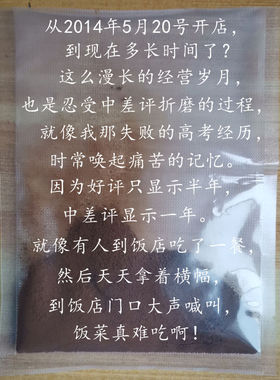 从2014年5月20号开店，
到现在多长时间了？
这么漫长的经营岁月，
也是忍受中差评折磨的过程，
就像我那失败的高考经历，
时常唤起痛苦的记忆。
因为好评只显示半年，
中差评显示一年。
就像有人到饭店吃了一餐，
然后天天拿着横幅，
到饭店门口大声喊叫，
饭菜真难吃啊！